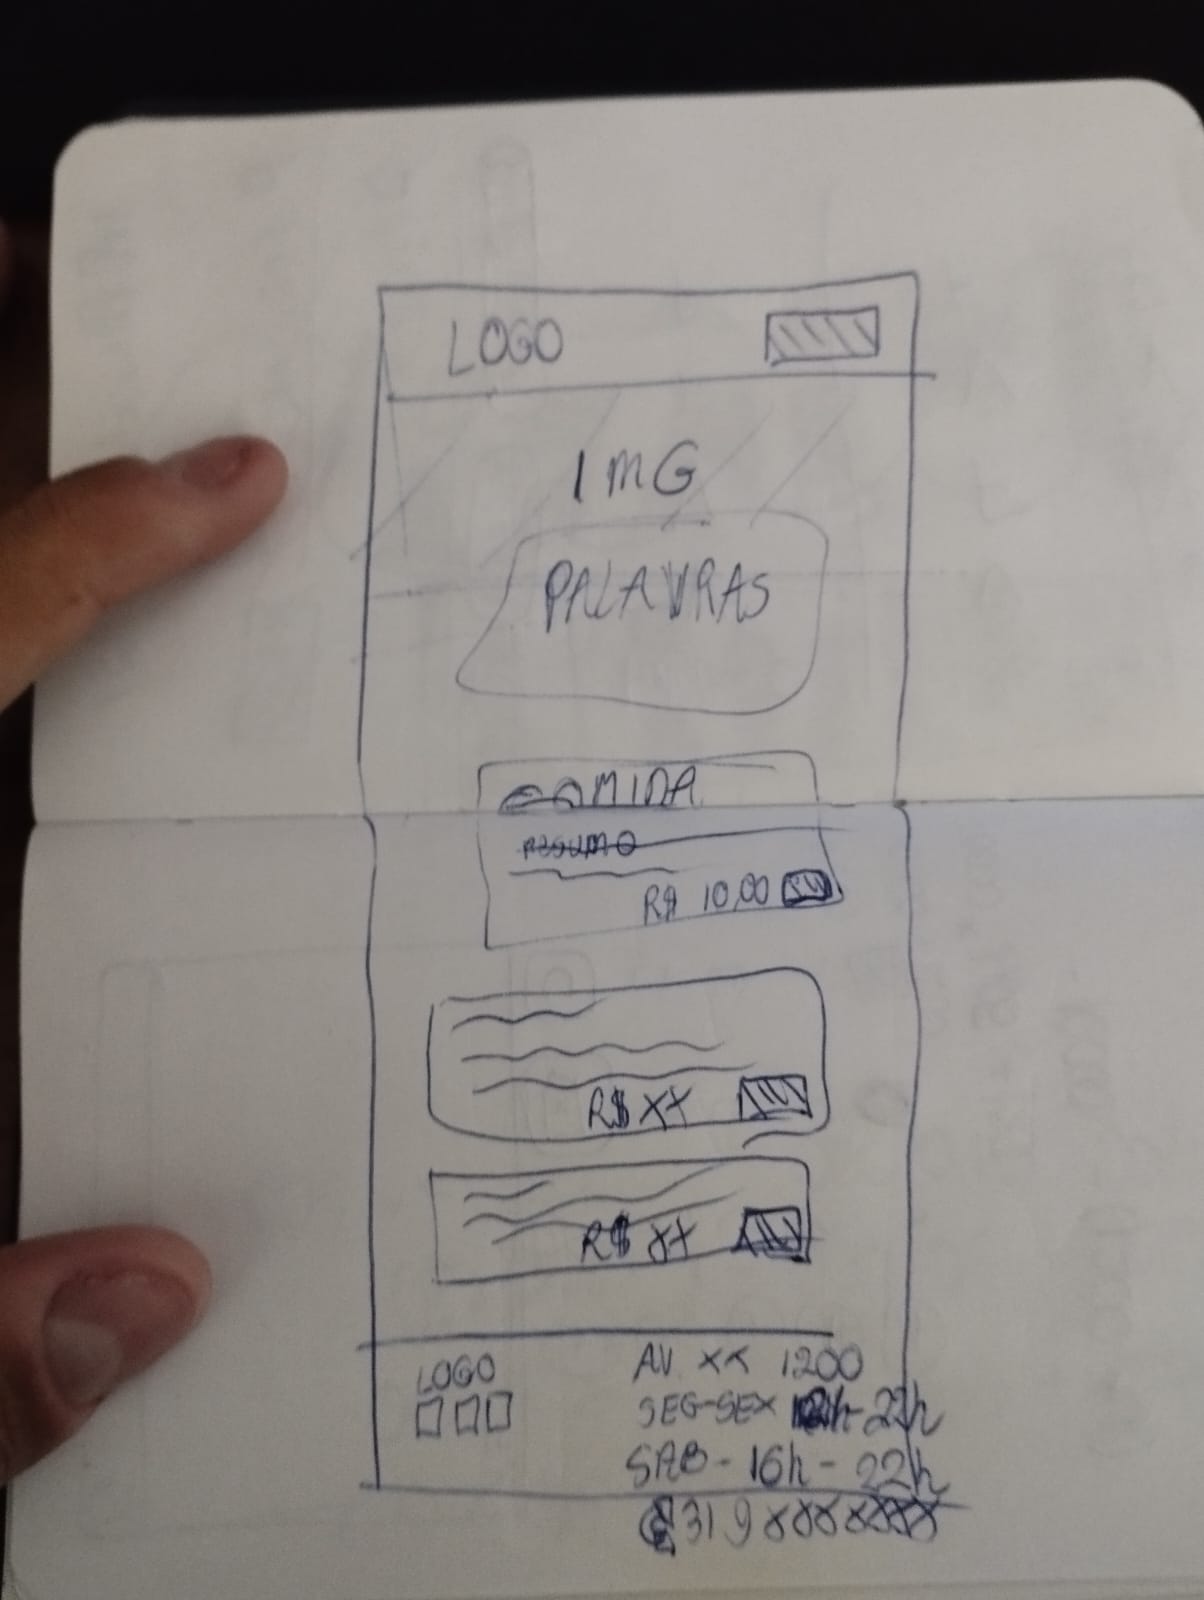 LOGO
IMG
PALAVRAS
COMIDA
RESUMO
R$ 10,00
R$ XX
R$ XX
LOGO
AV. XX 1200
SEG-SEX 12h-22h
SAB - 16h - 22h
31 9 XXXXXXXX